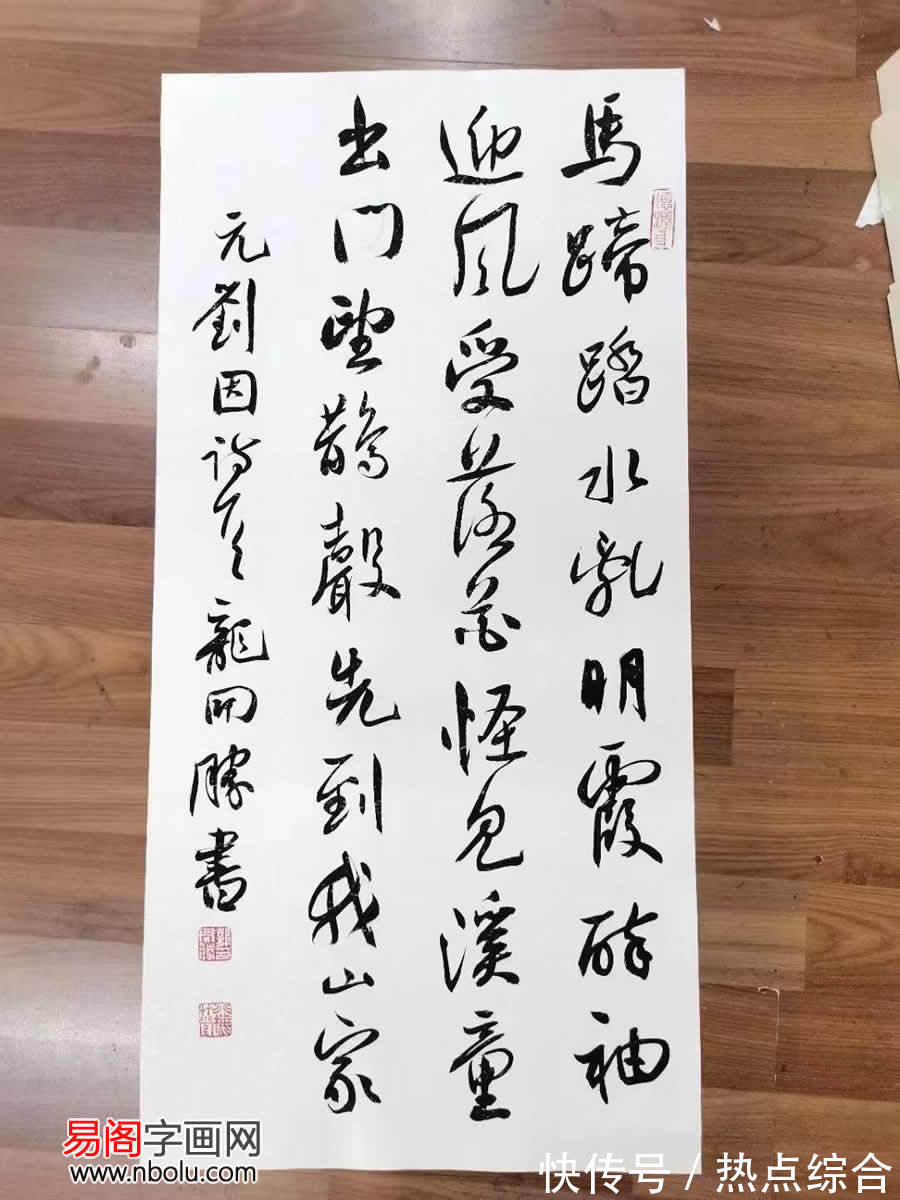 馬蹄踏水亂明霞醉袖
迎風受落花怪見溪童
出門望鵲聲先到我山家
元劉因詩一首龍開勝書
易阁字画网
www.nbolu.com
快传号 / 热点综合